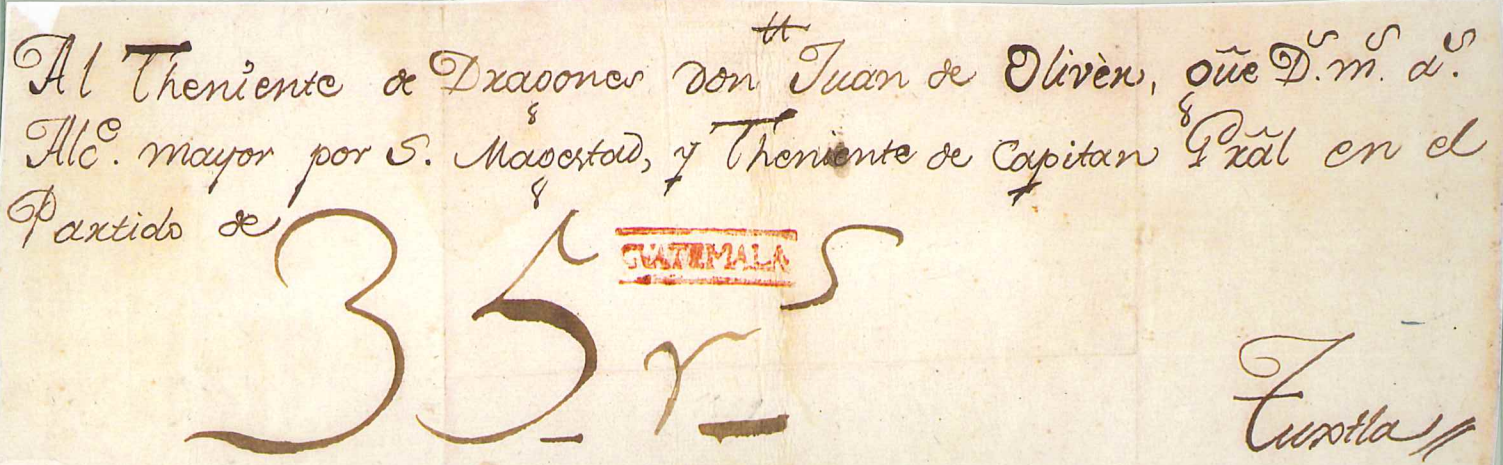 Al Theniente de Dragones don Juan de Olivèr, qũe D.s m.s a.s
Alc.e mayor por S. Magestad, y Theniente de Capitan Grãl en el
Partido de
GUATEMALA
35 r s
Tuxtla